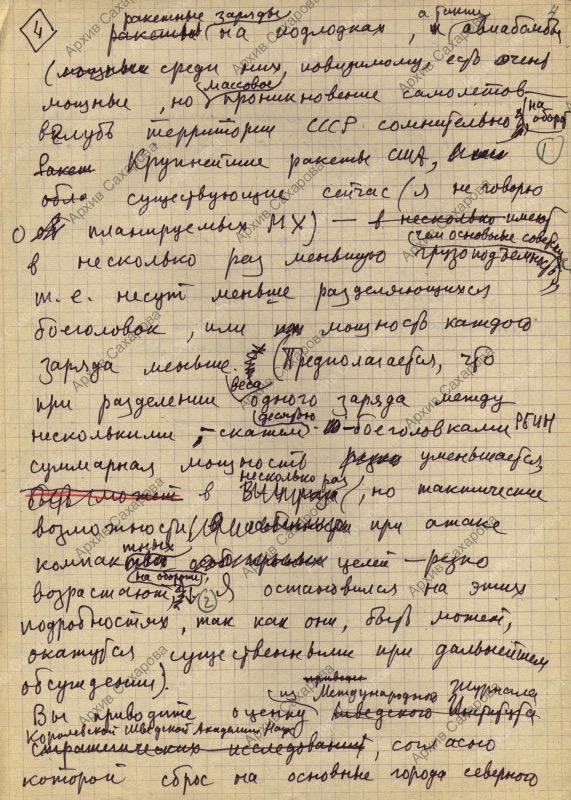 4
ракетные заряды
ракетах (на подлодках, а также авиабомбы
(мощных среди них, по-видимому, есть очень
мощные, но массовое проникновение самолетов
вглубь территории СССР сомнительно) на оборот
1
Крупнейшие ракеты США,
обла существующие сейчас (я не говорю
о планируемых MX) — в несколько имеют
чем основные советские
в несколько раз меньшую грузоподъемность,
т.е. несут меньше разделяющихся
боеголовок, или мощность каждого
заряда меньше. (Предполагается, что
при разделении веса одного заряда между
несколькими, – скажем десятью – боеголовками РБИН
суммарная мощность резко уменьшается
быть может в несколько раз, но тактические
возможности при атаке
компактных целей – резко
возрастают, на обороте 2 Я остановился на этих
подробностях, так как они, быть может,
окажутся существенными при дальнейшем
обсуждении).
Вы приводите оценку из Международного журнала
шведского Института
Королевской Шведской Академии Наук
стратегических исследований, согласно
которой сброс на основные города северного
Архив Сахарова